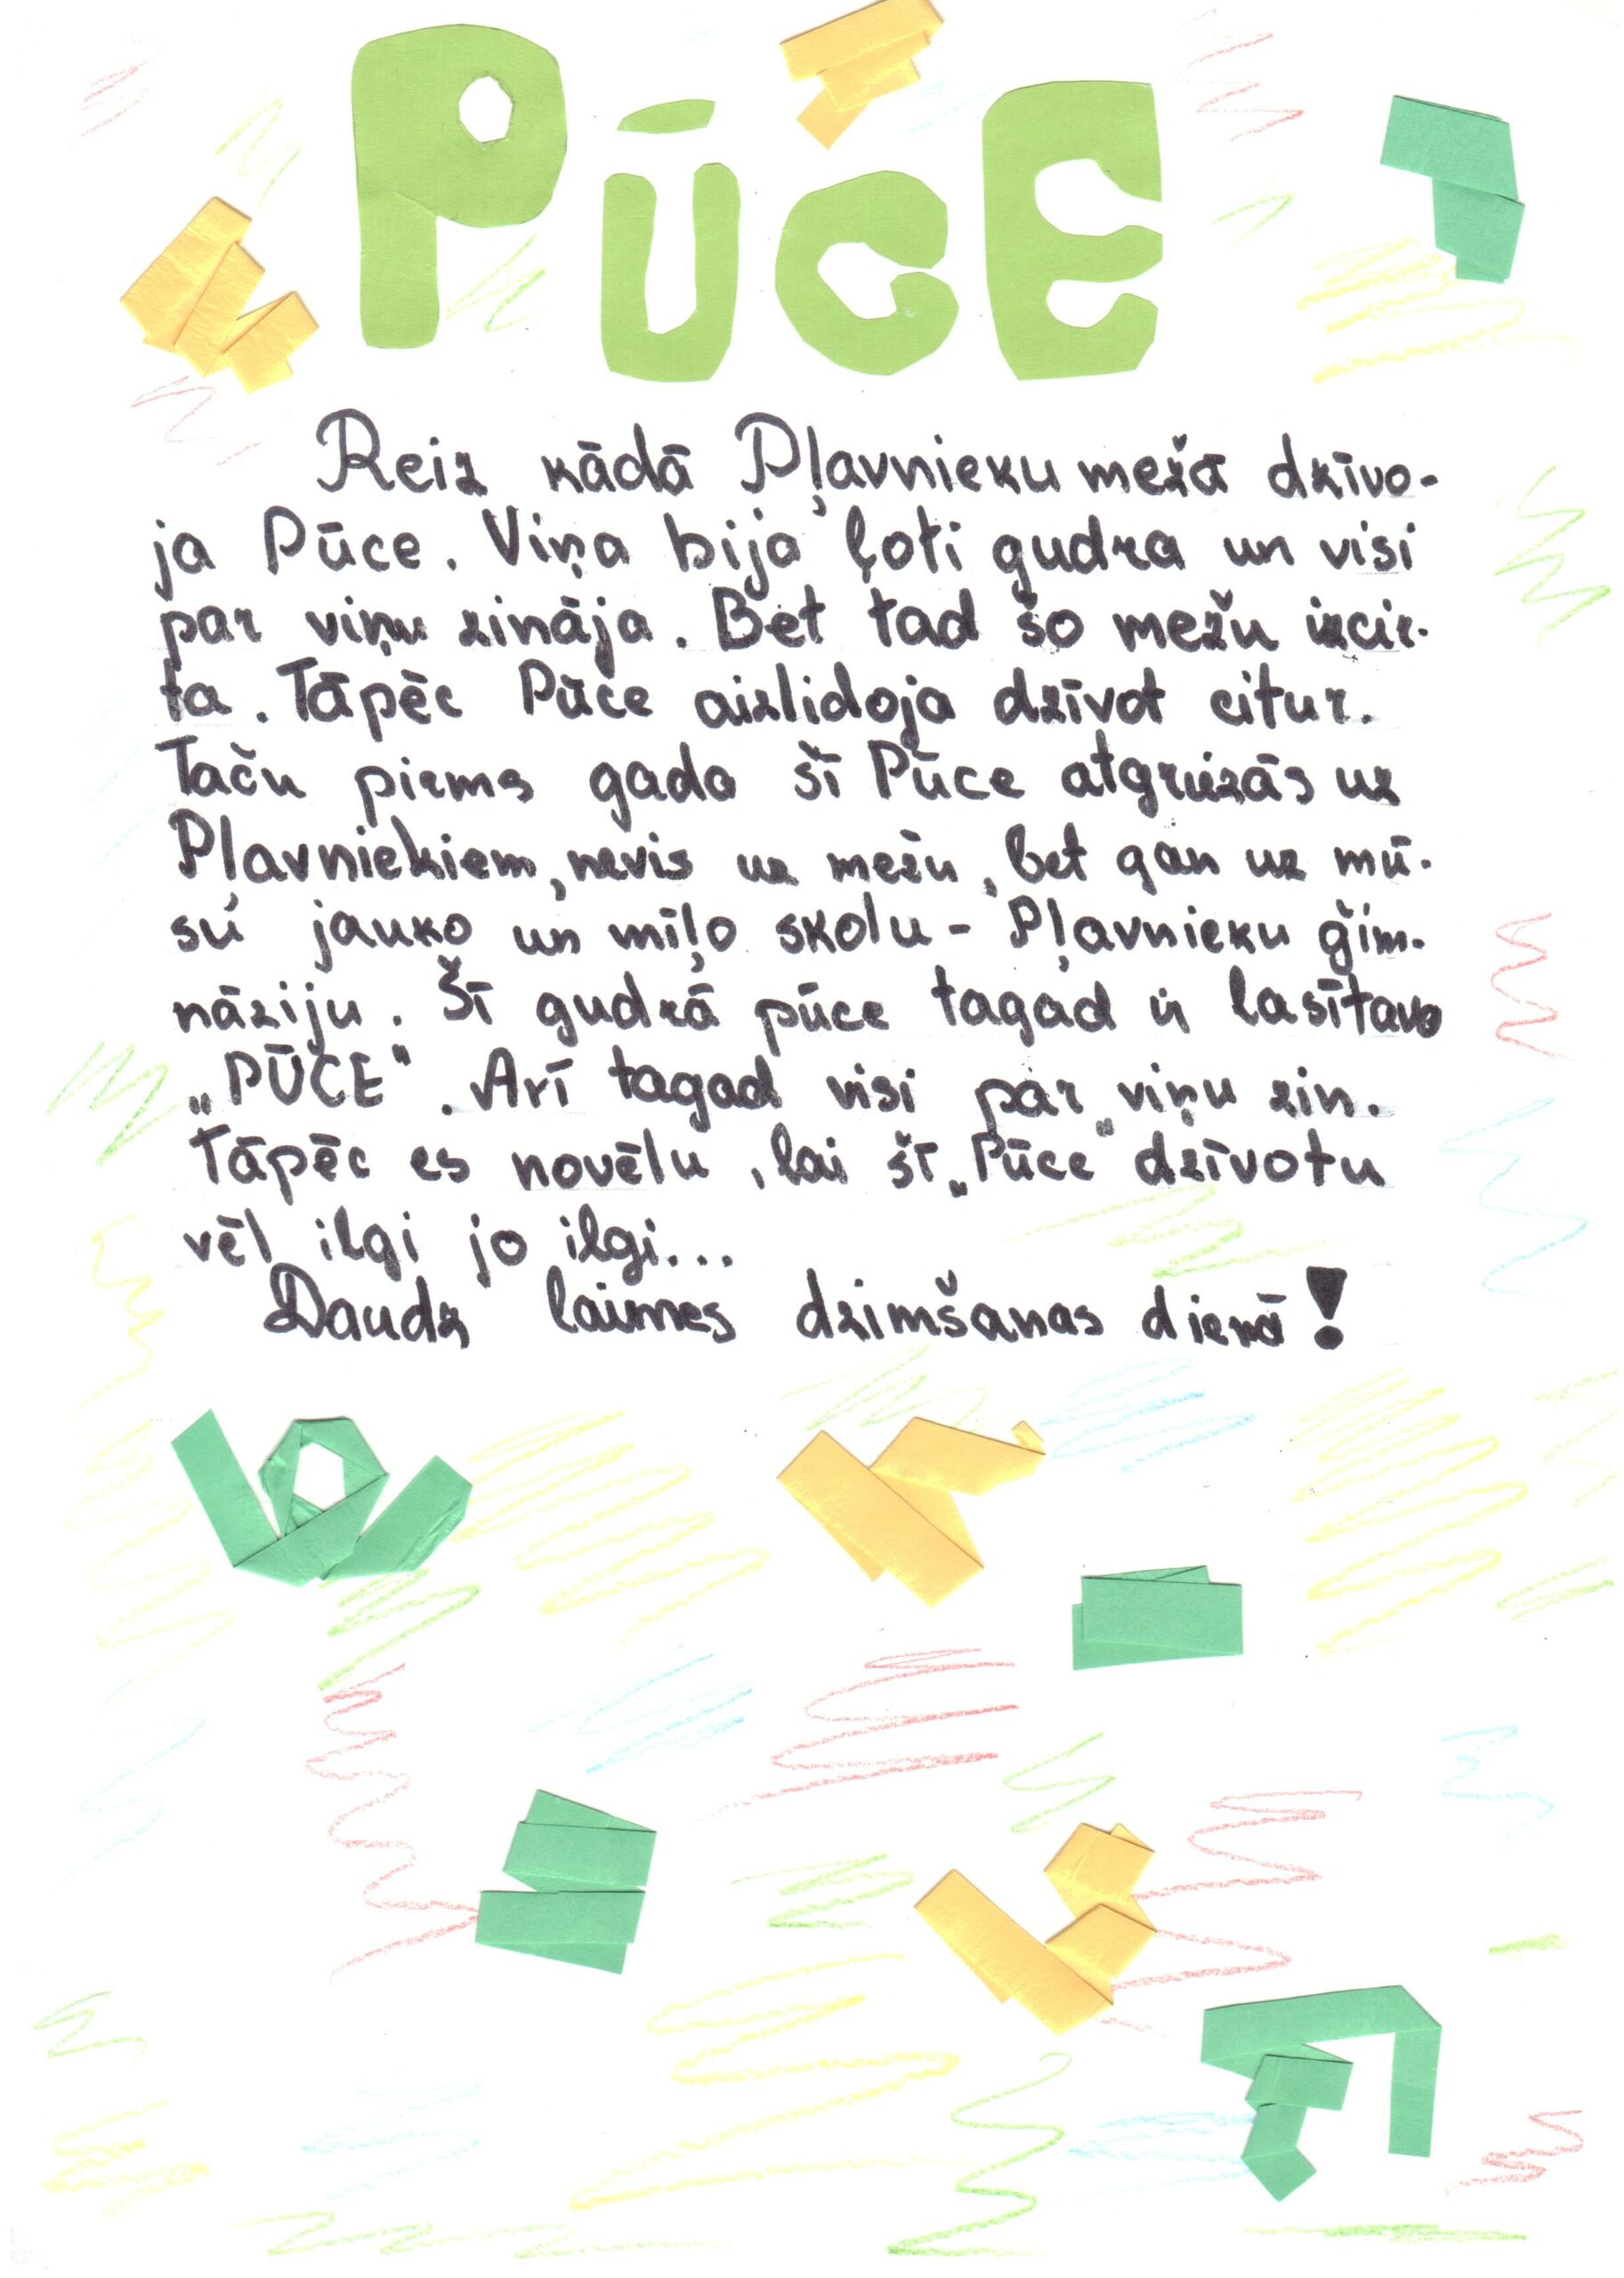 PŪCE
Reiz kādā Pļavnieku mežā dzīvo-
ja Pūce. Viņa bija ļoti gudra un visi
par viņu zināja. Bet tad šo mežu izcir-
ta. Tāpēc Pūce aizlidoja dzīvot citur.
Taču pirms gada šī Pūce atgriezās uz
Pļavniekiem, nevis uz mežu, bet gan uz mū-
su jauko un mīļo skolu - Pļavnieku ģim-
nāziju. Šī gudrā pūce tagad ir lasītava
„PŪCE". Arī tagad visi par viņu zin.
Tāpēc es novēlu, lai šī „Pūce" dzīvotu
vēl ilgi jo ilgi...
Daudz laimes dzimšanas dienā!